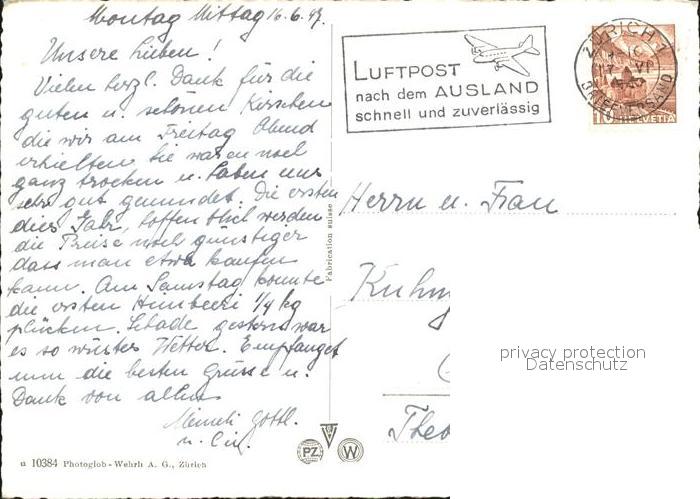 Montag Mittag 16.6.47.
Unsere Lieben!
Vielen herzl. Dank für die
guten u. schönen Kirschen
die wir am Freitag Abend
erhielten. Sie waren noch
ganz trocken u. haben uns
sehr gut gemundet. Die ersten
dies Jahr, hoffentlich werden
die Preise noch günstiger
dass man etwa kaufen
kann. Am Samstag konnte
die ersten Himbeeri 1/4 kg
plücken. Schade gestern war
es so wüster Wetter. Empfanget
nun die besten Grüsse u.
Dank von allen
Gottl.
u.
LUFTPOST
nach dem AUSLAND
schnell und zuverlässig
ZÜRICH 1
BRIEFVERSAND
10 HELVETIA
Herrn u. Frau
Kuhn
Theo
Fabrication suisse
privacy protection
Datenschutz
PZ W
u 10384 Photoglob-Wehrli A. G., Zürich